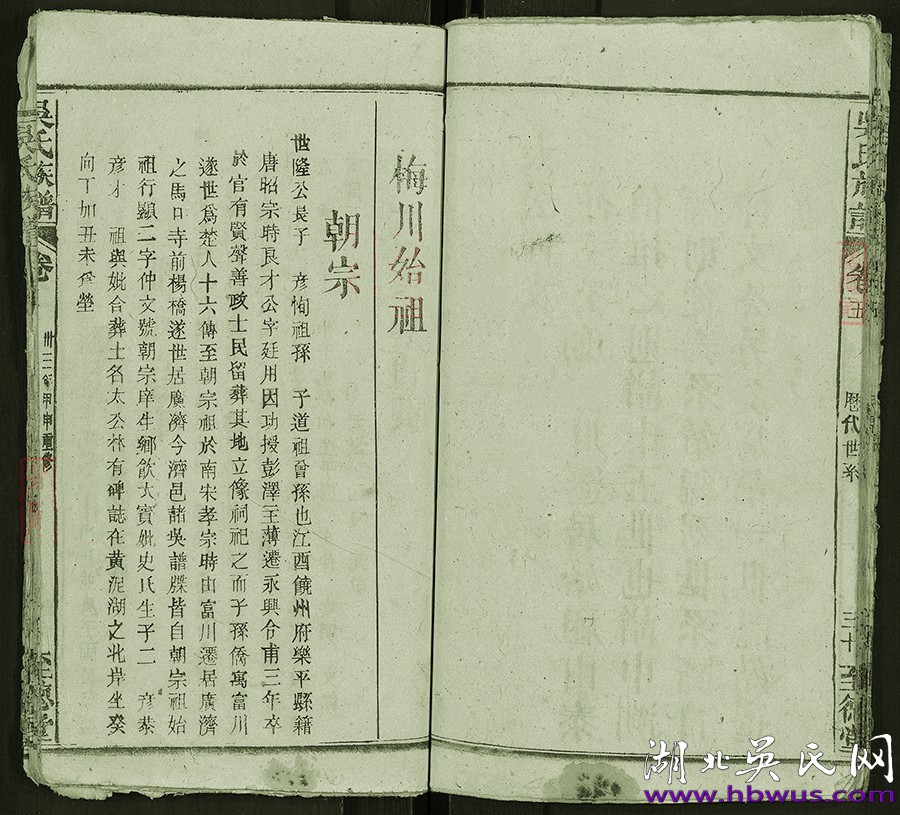 吳氏族譜
卷五
歷代世系
三十
至德堂
梅川始祖
朝宗
世隆公長子 彥恂祖孫 子道祖曾孫也江西饒州府樂平縣籍
唐昭宗時良才公字廷用因功授彭澤主薄遷永興令甫三年卒
於官有賢聲善政士民留葬其地立像祠祀之而子孫僑寓富川
遂世爲楚人十六傳至朝宗祖於南宋孝宗時由富川遷居廣濟
之馬口寺前楊橋遂世居廣濟今濟邑諸吳譜牒皆自朝宗祖始
祖行顯二字仲文號朝宗庠生鄉飲大賓妣史氏生子二 彥恭
彥才 祖與妣合葬土名太公林有碑誌在黃泥湖之北岸坐癸
向丁加丑未爲塋
吳氏族譜
卷
卅三年甲申重修
至德堂
湖北吳氏网
www.hbwus.com